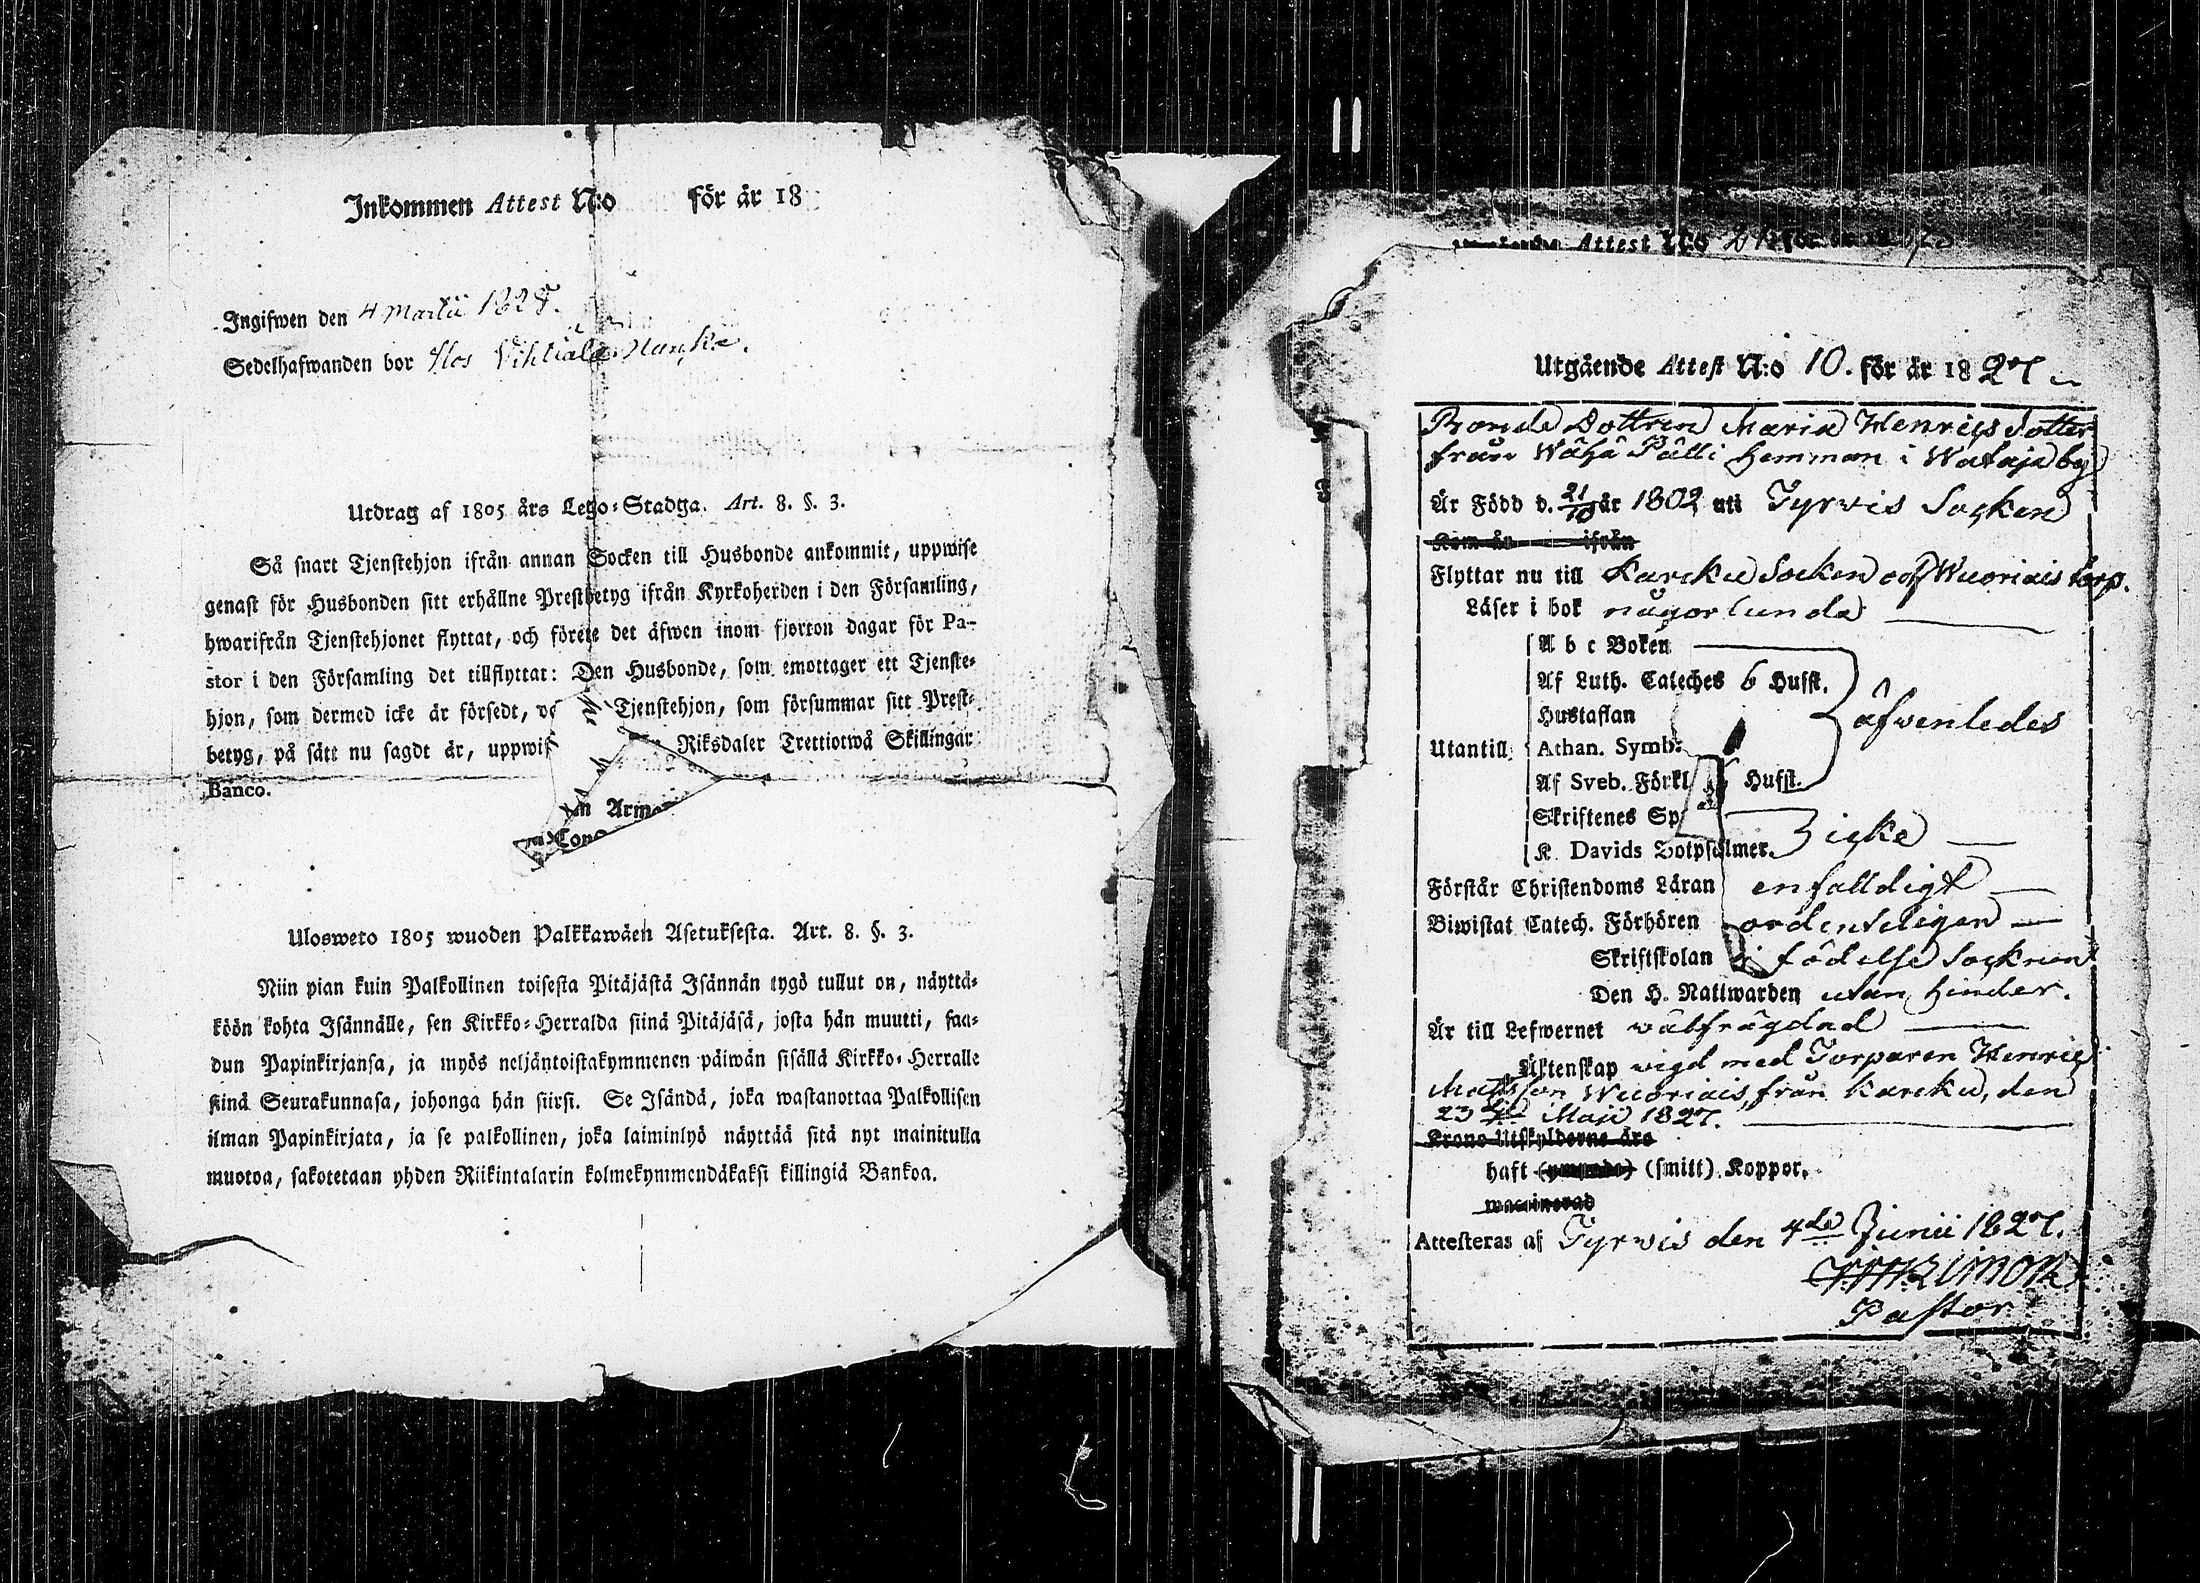 Inkommen Attest N:o för år 18
Ingifwen den 4 Martii 1828.
Sedelhafwanden bor Hos
Utdrag af 1805 års Lego-Stadga. Art. 8. §. 3.
Så snart Tjenstehjon ifrån annan Socken till Husbonde ankommit, uppwise
genast för Husbonden sitt erhållne Prestbetyg ifrån Kyrkoherden i den Församling,
hwarifrån Tjenstehjonet flyttat, och förete det äfwen inom fjorton dagar för Pa-
stor i den Församling det tillflyttat: Den Husbonde, som emottager ett Tjenste-
hjon, som dermed icke är försedt, Tjenstehjon, som försummar sitt Prest-
betyg, på sätt nu sagdt är, uppwis Riksdaler Trettiotwå Skillingar
Banco.
Ulosweto 1805 wuoden Palkkawäen Asetuksesta. Art. 8. §. 3.
Niin pian kuin Palkollinen toisesta Pitäjästä Isännän tygö tullut on, näyttä-
köön kohta Isännälle, sen Kirkko-Herralda siinä Pitäjäsä, josta hän muutti, saa-
dun Papinkirjansa, ja myös neljäntoistakymmenen päiwän sisällä Kirkko-Herralle
sinä Seurakunnasa, johonga hän siirsi. Se Isändä, joka wastanottaa Palkollisen
ilman Papinkirjata, ja se palkollinen, joka laiminlyö näyttää sitä nyt mainitulla
muotoa, sakotetaan yhden Riikintalarin kolmekymmendäkaksi killingiä Bankoa.
Attest N:o
Utgående Attest N:o 10. för år 1827
Bonde Dottren Maria Henrics dotter
från Wähä Pälli Hemman i Wataja by
Är Född d. 21/10 år 1802 uti Tyrvis Socken
Kom år ifrån
Flyttar nu till Karcku Socken och Wuoriais torp.
Läser i bok någorlunda
A b c Boken
Af Luth. Cateches 6 Hufst.
Hustaflan
äfwenledes
Utantill Athan. Symb.
Af Sveb. Förkl Hufst.
Skriftenes Sp
K. Davids Botpsalmer. icke
Förstår Christendoms Läran enfalldigt
Biwistat Catech. Förhören ordenteligen
Skriftskolan i födelse Socknen
Den H. Nattwarden utan hinder.
Är till Lefwernet wälfrägdad
Äktenskap wigd med Torparen Henric
Matsson Wuoriais, från Karcku, den
23 Maji 1827.
Krono Utskylderne års
haft (smitt) Koppor.
waccinerad
Attesteras af Tyrvis den 4de Junii 1827.
Pastor